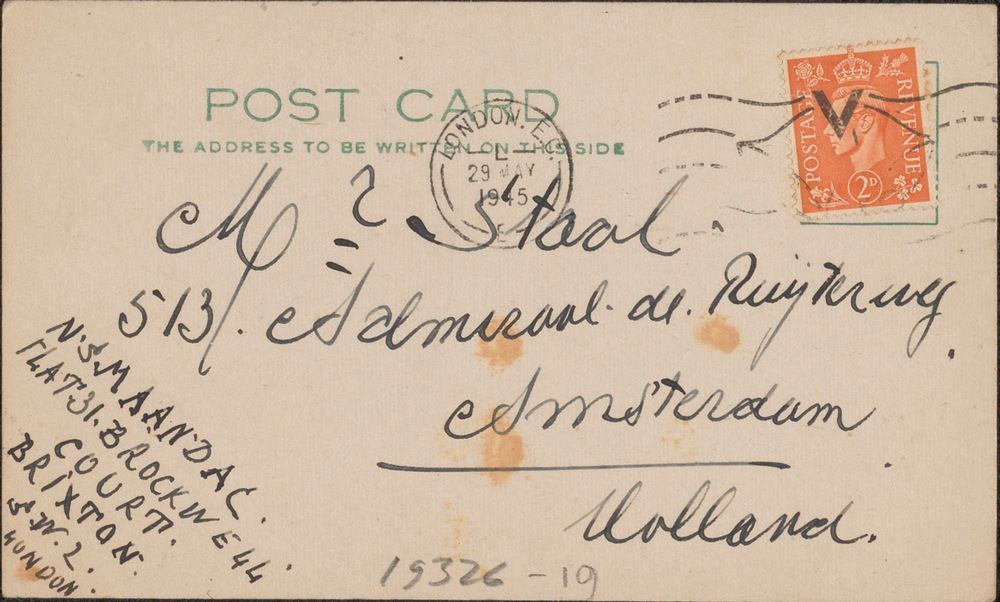 POST CARD
THE ADDRESS TO BE WRITTEN ON THIS SIDE
LONDON. E.C.
L
29 MAY
1945
E
POSTAGE REVENUE
V
2D
Mr Staal.
513. Admiraal. de. Ruyterweg.
Amsterdam.
Holland.
N.S. MAANDAG.
FLAT 31. BROCKWELL.
COURT.
BRIXTON.
S.W.2.
LONDON.
19326-19